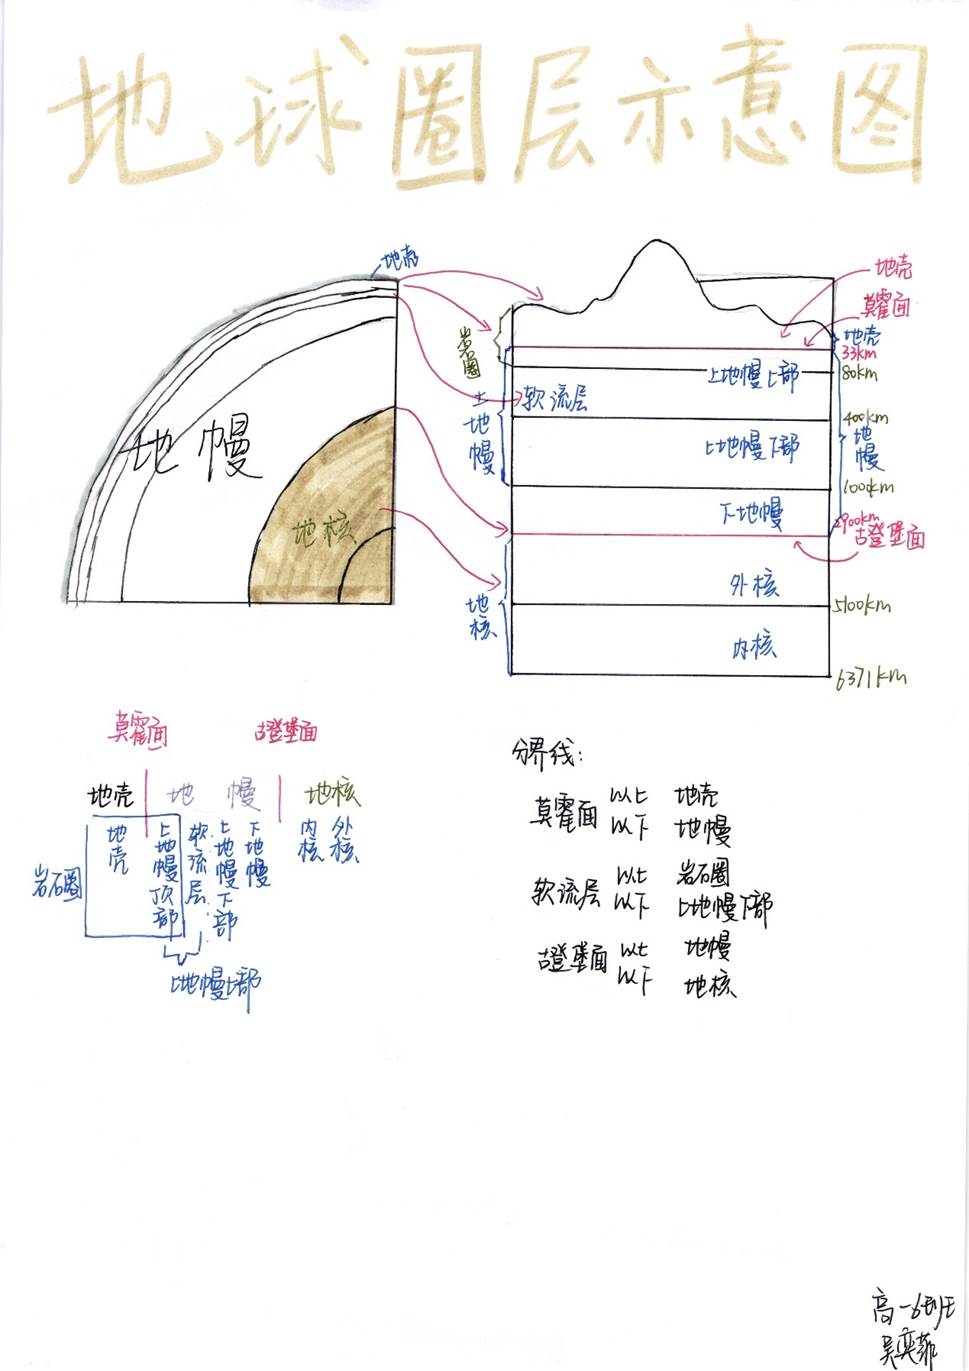 地球圈层示意图
地壳
地幔
地核
地壳
莫霍面
地壳
33km
80km
岩圈
上地幔上部
上地幔
软流层
400km
地幔
上地幔下部
1000km
下地幔
2900km
古登堡面
地核
外核
5100km
内核
6371km
莫霍面 古登堡面
地壳 地幔 地核
岩石圈
地壳 上地幔顶部 软流层 上地幔下部 下地幔 内核 外核
上地幔上部
分界线:
莫霍面 以上 地壳
以下 地幔
软流层 以上 岩石圈
以下 上地幔下部
古登堡面 以上 地幔
以下 地核
高一6班
吴奕菲